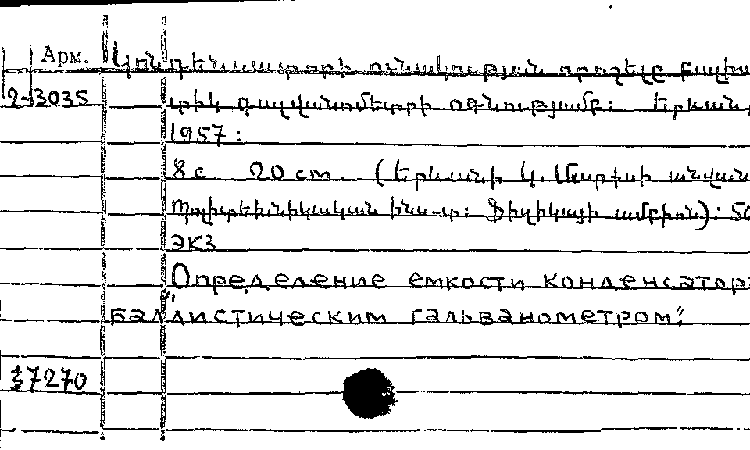 Арм. Կոնդենսատորի ունակության որոշելը բալիս
2-3035 տիկ գալվանոմետրի օգնությամբ: Երևան,
1957:
8 с. 20 cm. (Երևանի Կ. Մարքսի անվան
Պոլիտեխնիկական ինս-տ: Ֆիզիկայի ամբիոն): 50
экз
"Определение емкости конденсатора
баллистическим гальванометром":
37270